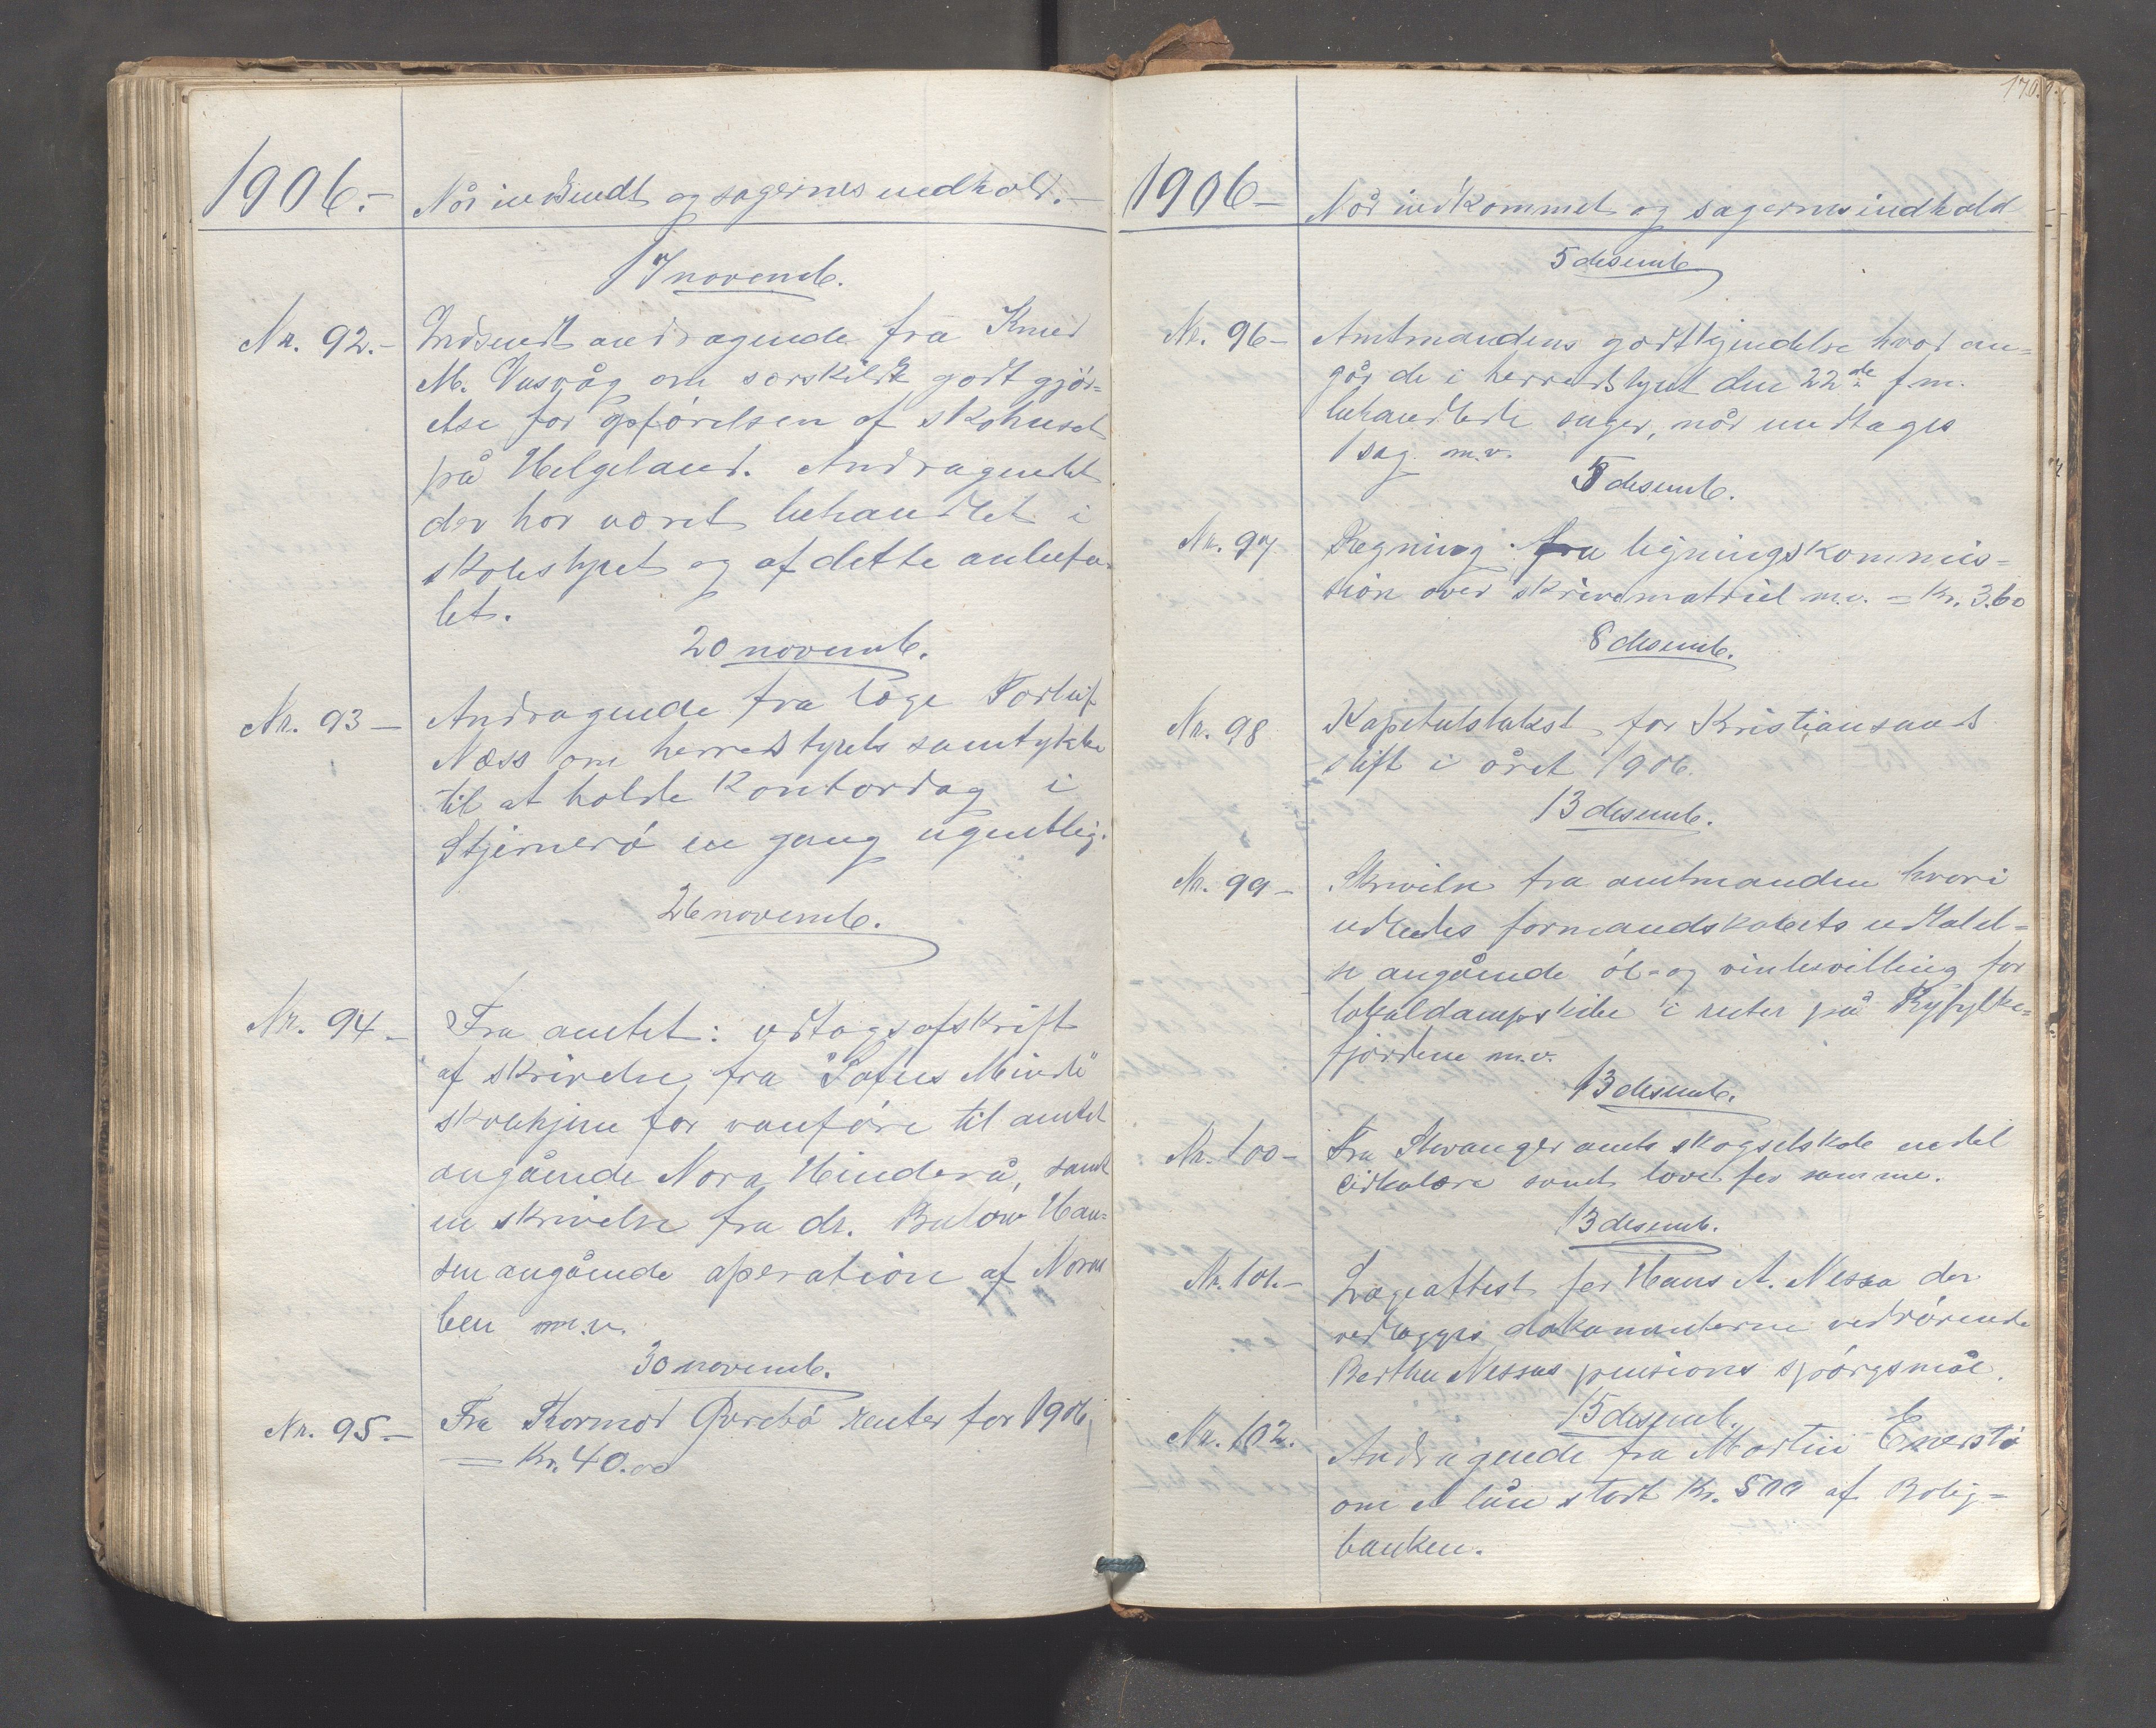 1906.- Når indsendt og sagernes indhold.-
17 novemb.
Nr. 92.- Indsendt andragende fra Knud
M. Vasvåg om særskildt godtgjør-
else for opførelsen af skohuset
på Helgeland. Andragendet
der har været behandlet i
skolestyret og af dette anbefa-
let.
20 novemb.
Nr. 93- Andragende fra læge Torleif
Næss om herredstyrets samtykke
til at holde kontordag i
Stjernerø en gang ugentlig.
26 novemb.
Nr. 94- Fra amtet: udtogsafskrift
af skrivelse fra "Sofies Minde"
skolehjem for vanføre til amtet
angående Nora Hinderå, samt
en skrivelse fra dr. Bulow Han-
sen angående operation af Noras
ben m.v.
30 novemb.
Nr. 95- Fra Thormod renter for 1906,
= Kr. 40.00
170.
1906- Når indkommet og sagernes indhold
5 desemb
Nr. 96- Amtmandens godkjendelse hvad an-
går de i herredstyret den 22de f.m.
behandlede sager, når undtages
1 sag. m.v.
5 desemb.
Nr. 97. Regning fra ligningskommis-
sion over skrivematriel m.v. = Kr. 3.60
8 desemb.
Nr. 98 Kapitelstakst for Kristiansands
stift i året 1906.
13 desemb.
Nr. 99- Skrivelse fra amtmanden hvori
udbedes formandskabets udtalel-
se angående øl- og vinbevilling for
lokaldampskibe i ruter på Ryfylke-
fjordene m.v.
13 desemb.
Nr. 100- Fra Stavanger amts skogselskab endel
cirkulære samt love for samme.
13 desemb.
Nr. 101.- Lægeattest for Hans A. Nessa der
vedlægges dokumenterne vedrørende
Bertha Nessas pensions spørgsmål.
15 desemb.
Nr. 102. Andragende fra Martin Enerstø
om et lån stort Kr. 500 af Bolig-
banken.